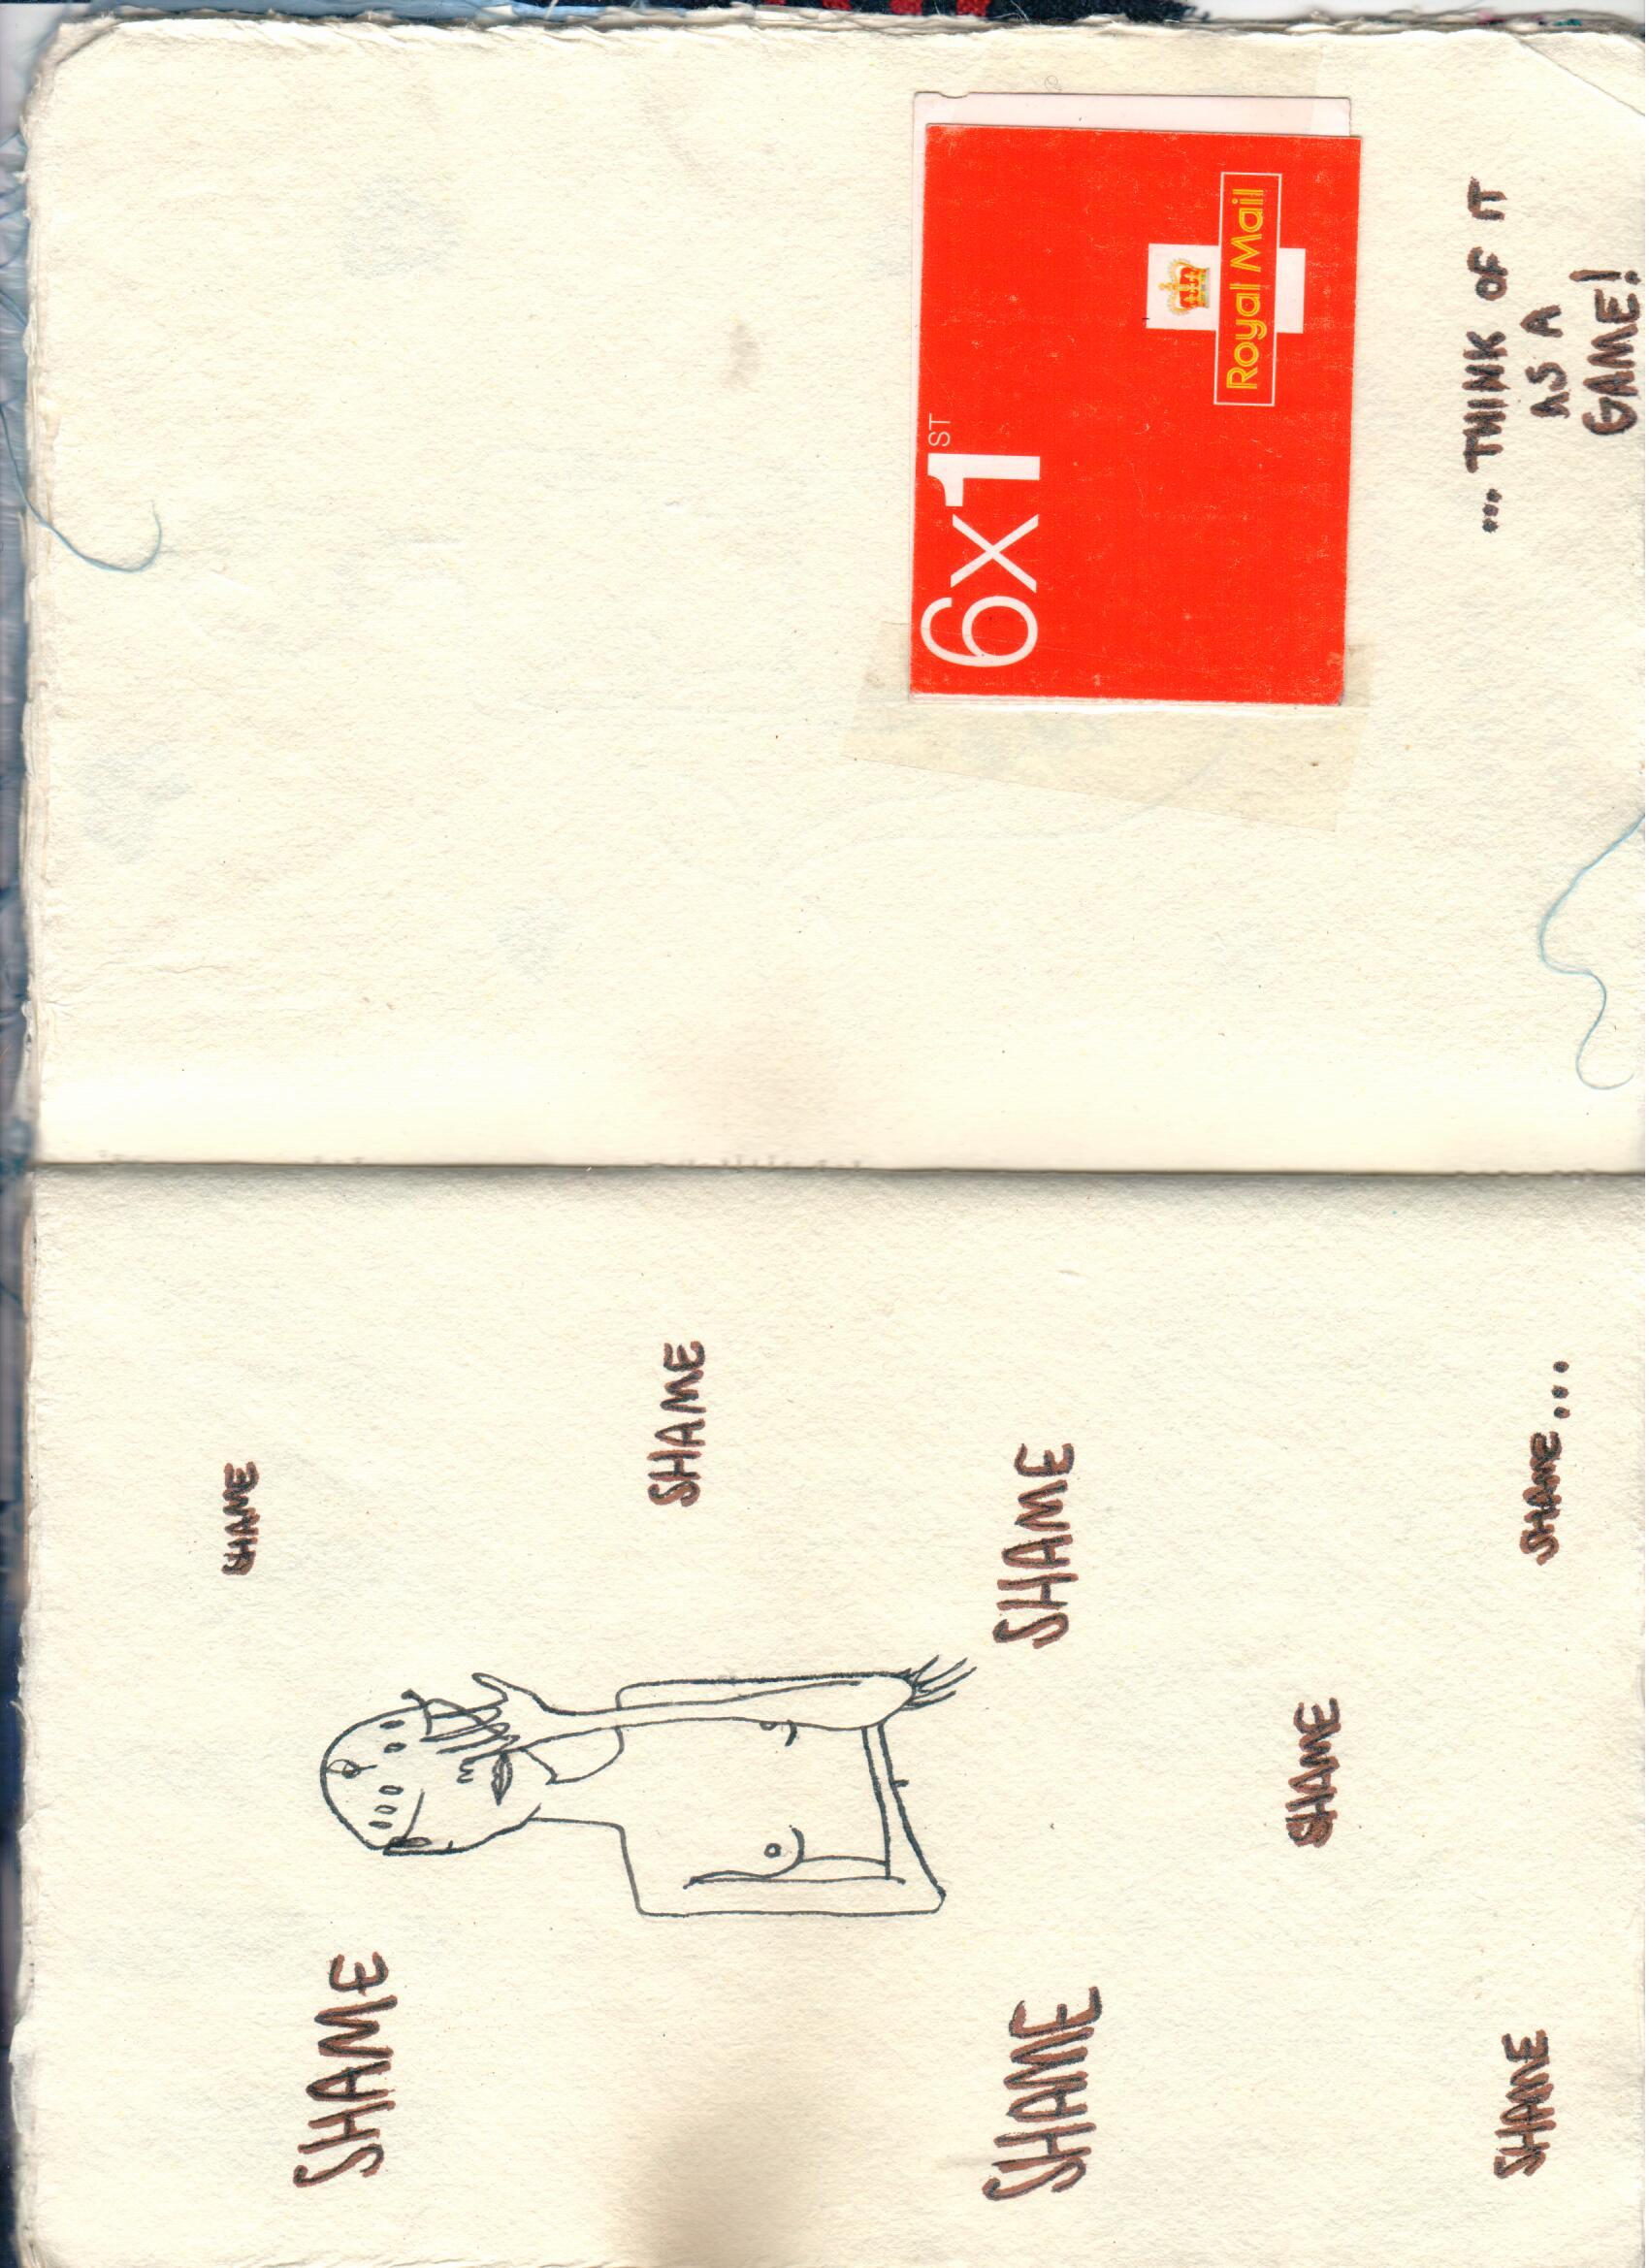 SHAME
SHAME
SHAME
SHAME
SHAME
SHAME
SHAME
SHAME...
6x1ST
Royal Mail
... THINK OF IT
AS A
GAME!